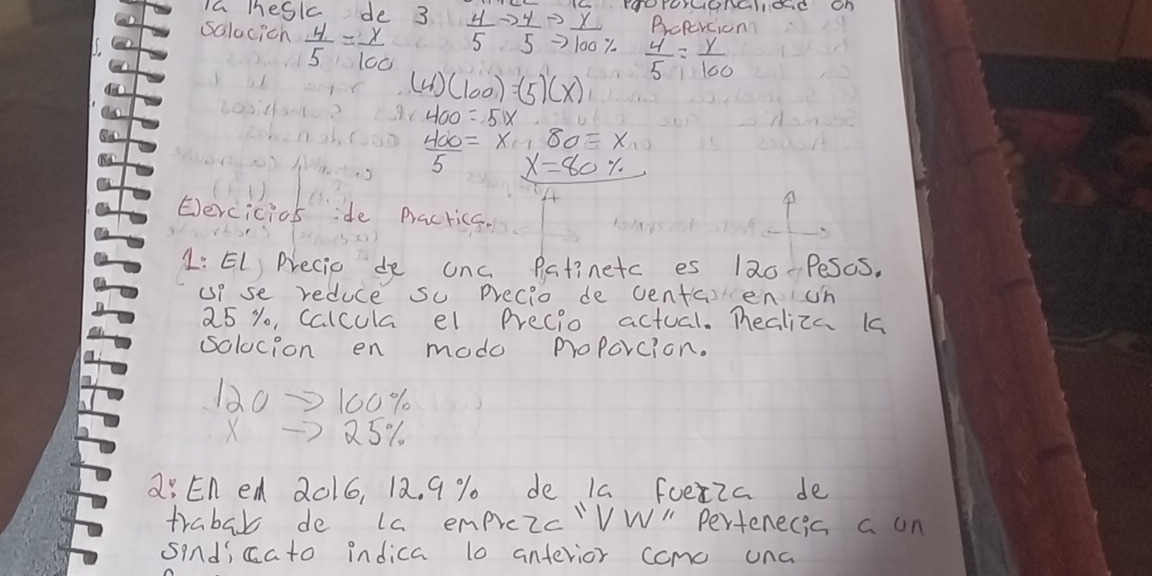 la Regla de 3. 4/5 → 4/5 → x/→100% Proporcion
Solucion 4/5 = x/100 4/5 = x/100
(4)(100)=(5)(x)
400 = 5x
400/5 = x 80 = x
x=80%
Ejercicios de Practica.
1: El Precio de una Patineta es 120 Pesos.
si se reduce su Precio de venta en un
25%, calcula el Precio actual. Realiza la
Solucion en modo Proporcion.
120 → 100%
x → 25%
2: En el 2016, 12.9% de la fuerza de
trabajo de la empreza "VW" Pertenecia a un
sindicato indica lo anterior como una